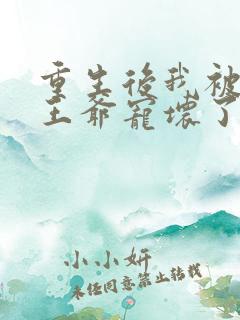 重生後我被
王爺寵壞了
小小妍
未经同意禁止转载